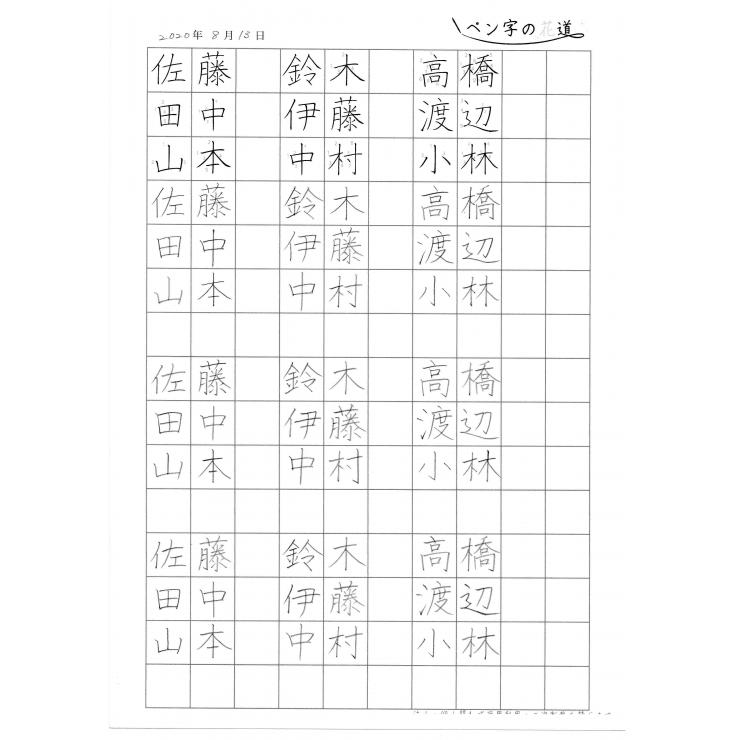 2020年 8月 13日
ペン字の花道
佐藤 鈴木 高橋
田中 伊藤 渡辺
山本 中村 小林
佐藤 鈴木 高橋
田中 伊藤 渡辺
山本 中村 小林
佐藤 鈴木 高橋
田中 伊藤 渡辺
山本 中村 小林
佐藤 鈴木 高橋
田中 伊藤 渡辺
山本 中村 小林